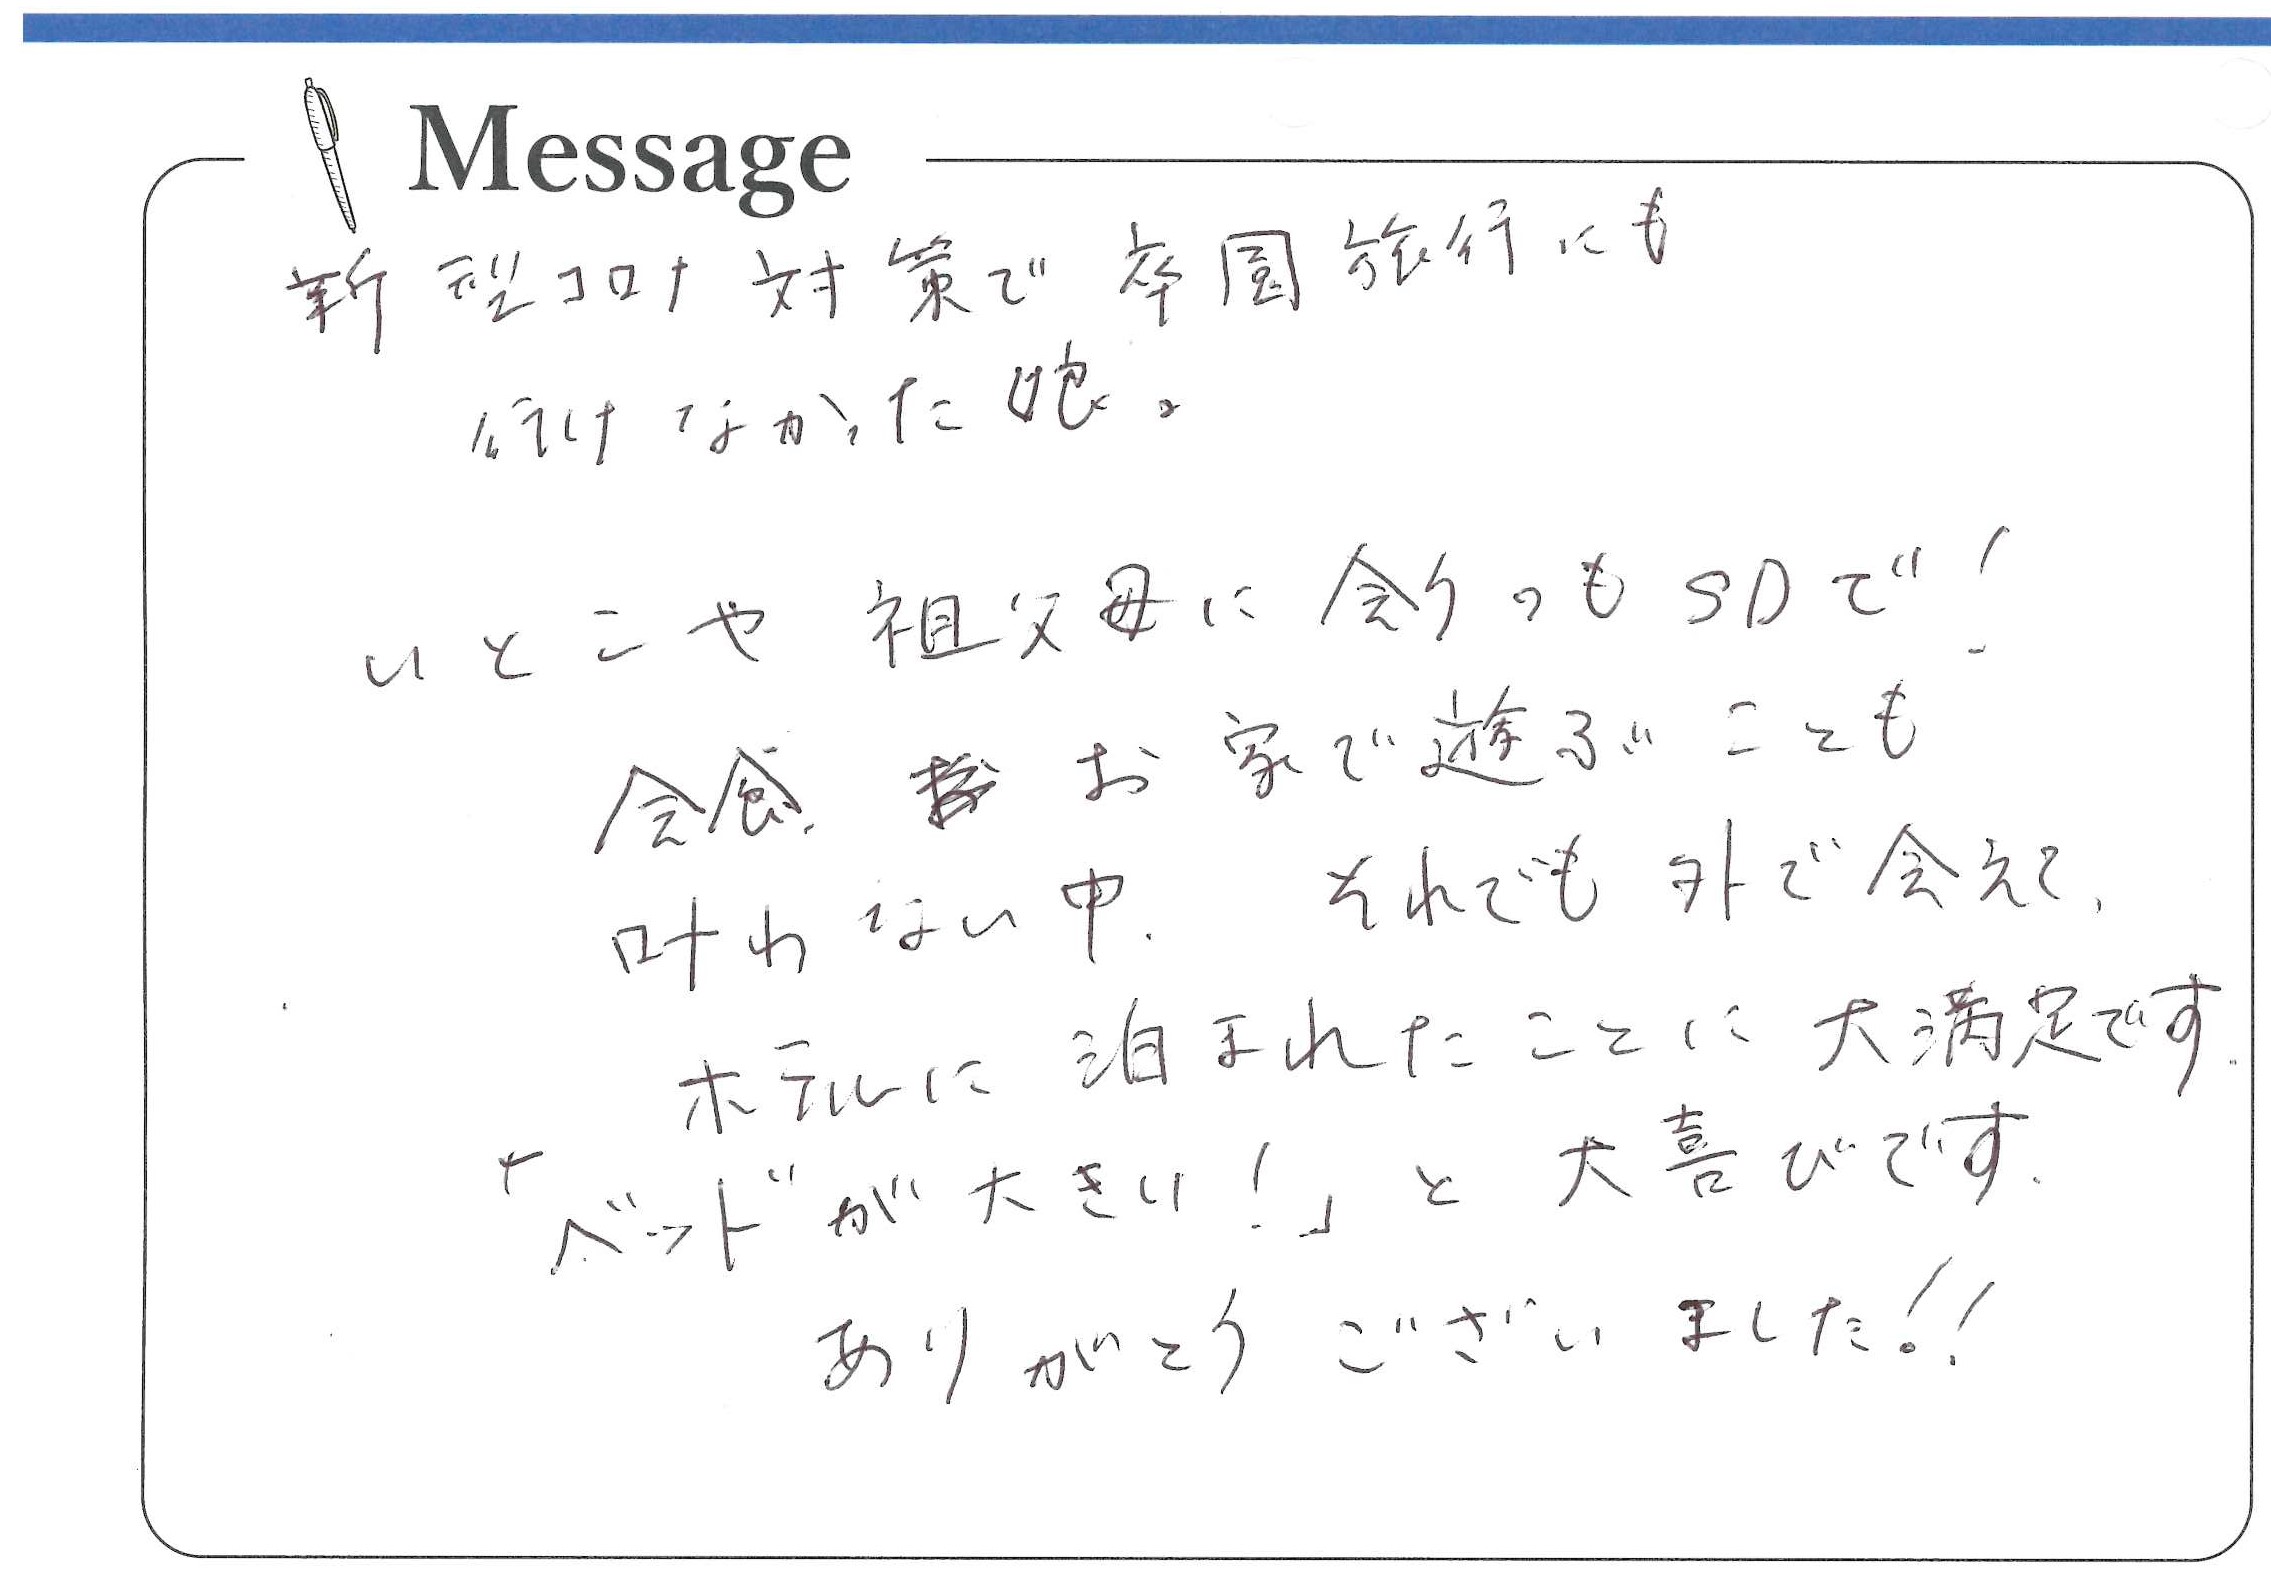 Message
新型コロナ対策で卒園旅行にも
行けなかった娘。
いとこや祖父母に会うのもSDで!
会食、お家で遊ぶことも
叶わない中、それでも外で会えて、
ホテルに泊まれたことに大満足です.
「ベッドが大きい!」と大喜びです.
ありがとうございました!!